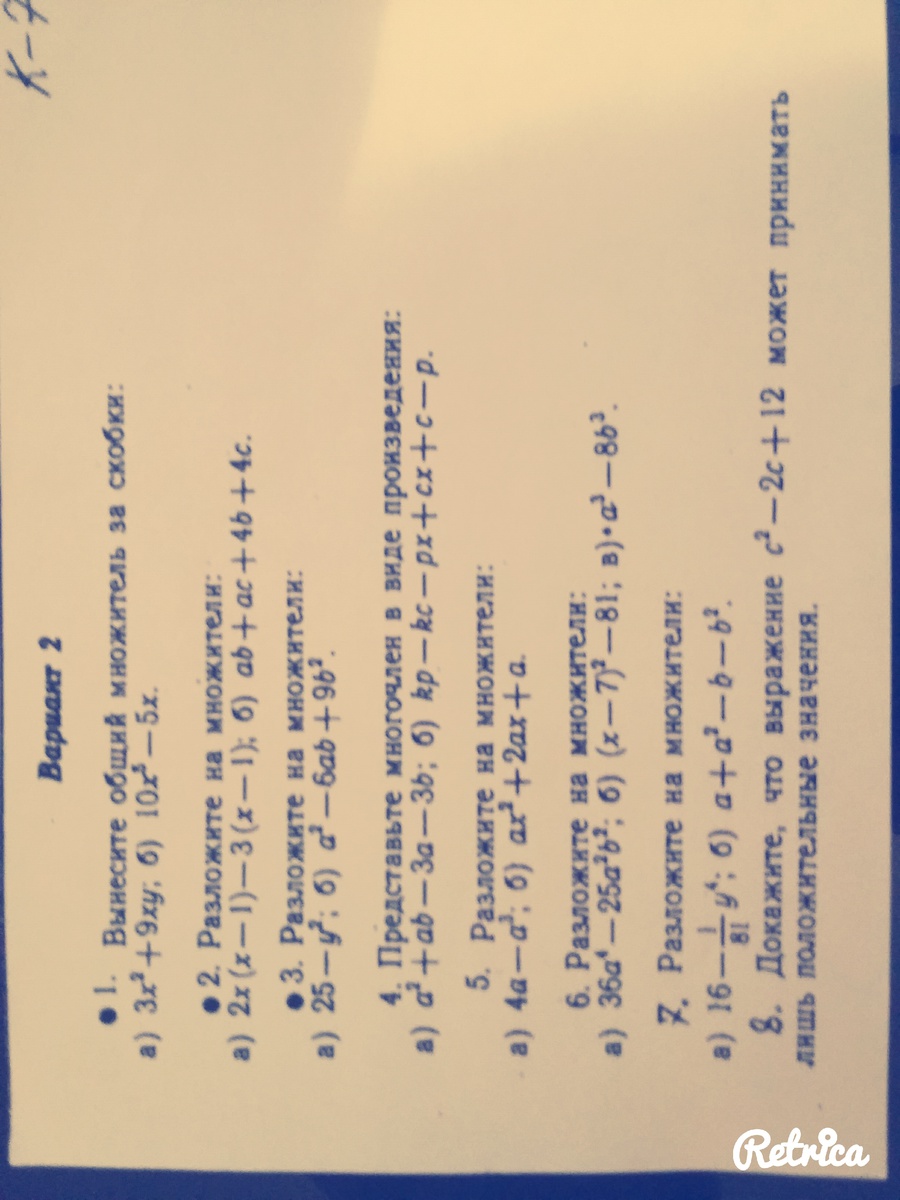 К-7
Вариант 2
• 1. Вынесите общий множитель за скобки:
а) 3x² + 9xy; б) 10x⁵ — 5x.
• 2. Разложите на множители:
а) 2x (x — 1) — 3 (x — 1); б) ab + ac + 4b + 4c.
• 3. Разложите на множители:
а) 25 — y²; б) a² — 6ab + 9b².
4. Представьте многочлен в виде произведения:
а) a² + ab — 3a — 3b; б) kp — kc — px + cx + c — p.
5. Разложите на множители:
а) 4a — a³; б) ax² + 2ax + a.
6. Разложите на множители:
а) 36a⁴ — 25a²b²; б) (x — 7)² — 81; в)• a³ — 8b³.
7. Разложите на множители:
а) 16 — 1/81 y⁴; б) a + a² — b — b².
8. Докажите, что выражение c² — 2c + 12 может принимать
лишь положительные значения.
Retrica